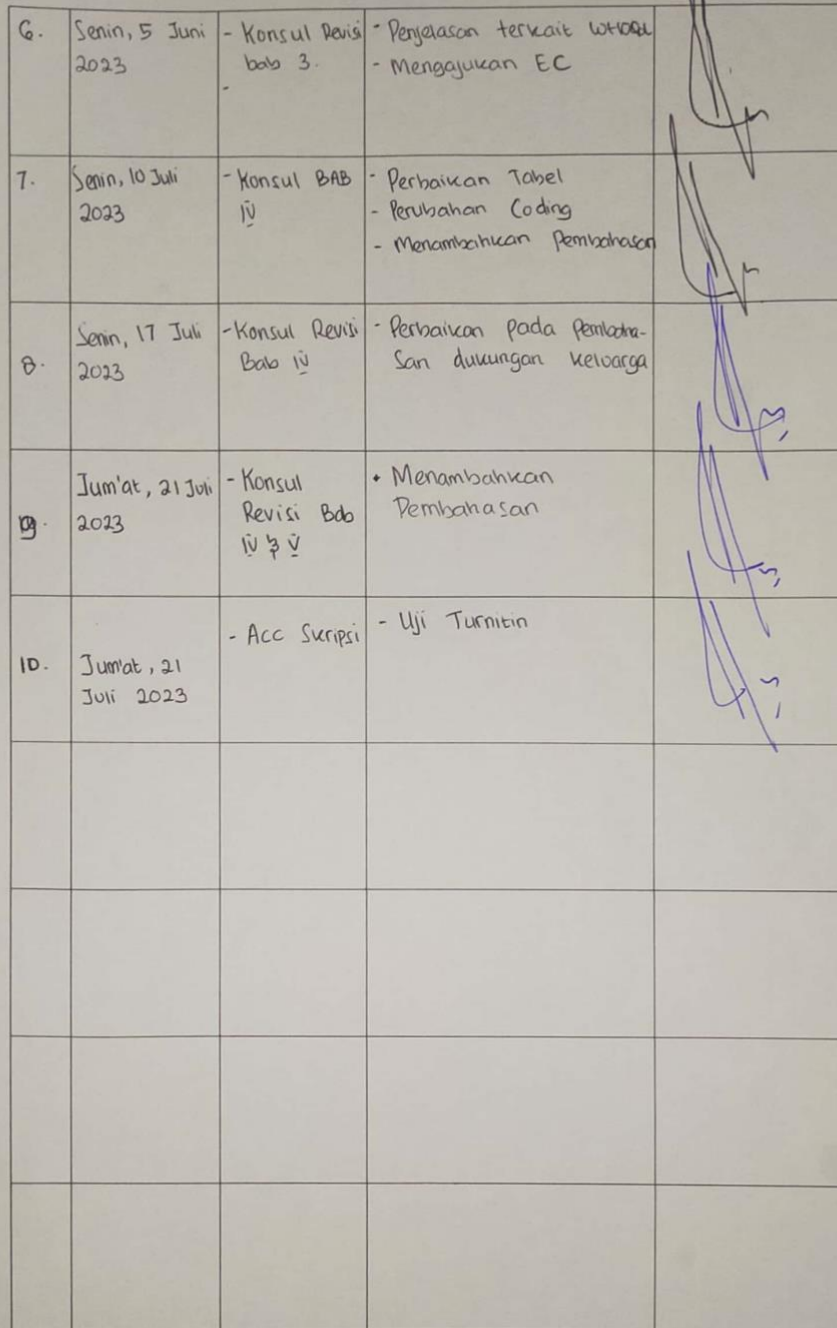 6.
Senin, 5 Juni
2023
- Konsul Revisi
bab 3.
-
- Penjelasan terkait WHOQL
- Mengajukan EC
7.
Senin, 10 Juli
2023
- Konsul BAB
IV
- Perbaikan Tabel
- Perubahan Coding
- Menambahkan Pembahasan
8.
Senin, 17 Juli
2023
- Konsul Revisi
Bab IV
- Perbaikan pada Pembaha-
san dukungan keluarga
9.
Jum'at, 21 Juli
2023
- Konsul
Revisi Bab
IV & V
• Menambahkan
Pembahasan
10.
Jum'at, 21
Juli 2023
- Acc Skripsi
- Uji Turnitin